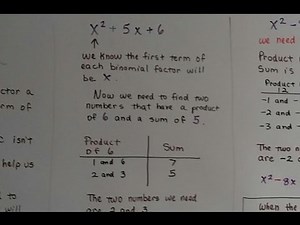 x² + 5x + 6
We know the first term of
each binomial factor will
be x.
Now we need to find two
numbers that have a product
of 6 and a sum of 5.
Product of 6 | Sum
1 and 6 | 7
2 and 3 | 5
The two numbers we need
are 2 and 3.
ctor a
rm of
C isn't
help us
to
will
x² -
we need
Product
12
Sum is
-1 and -
-2 and -
-3 and -
The two n
are -2 a
x² - 8x
When the